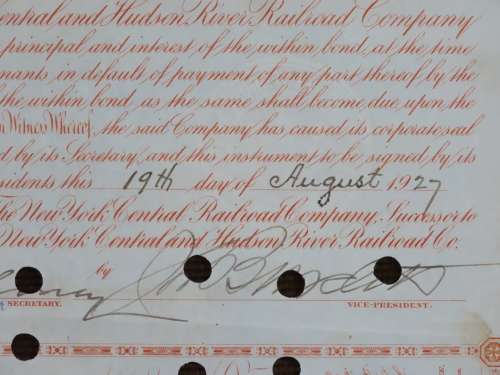 entral and Hudson River Railroad Company
principal and interest of the within bond, at the time
nants, in default of payment of any part thereof by the
the within bond as the same shall become due, upon the
n Witness Whereof, the said Company has caused its corporate seal
d by its Secretary, and this instrument to be signed by its
sidents this 19th day of August 1927
The New York Central Railroad Company, Successor to
New York Central and Hudson River Railroad Co.
by
SECRETARY. VICE-PRESIDENT.